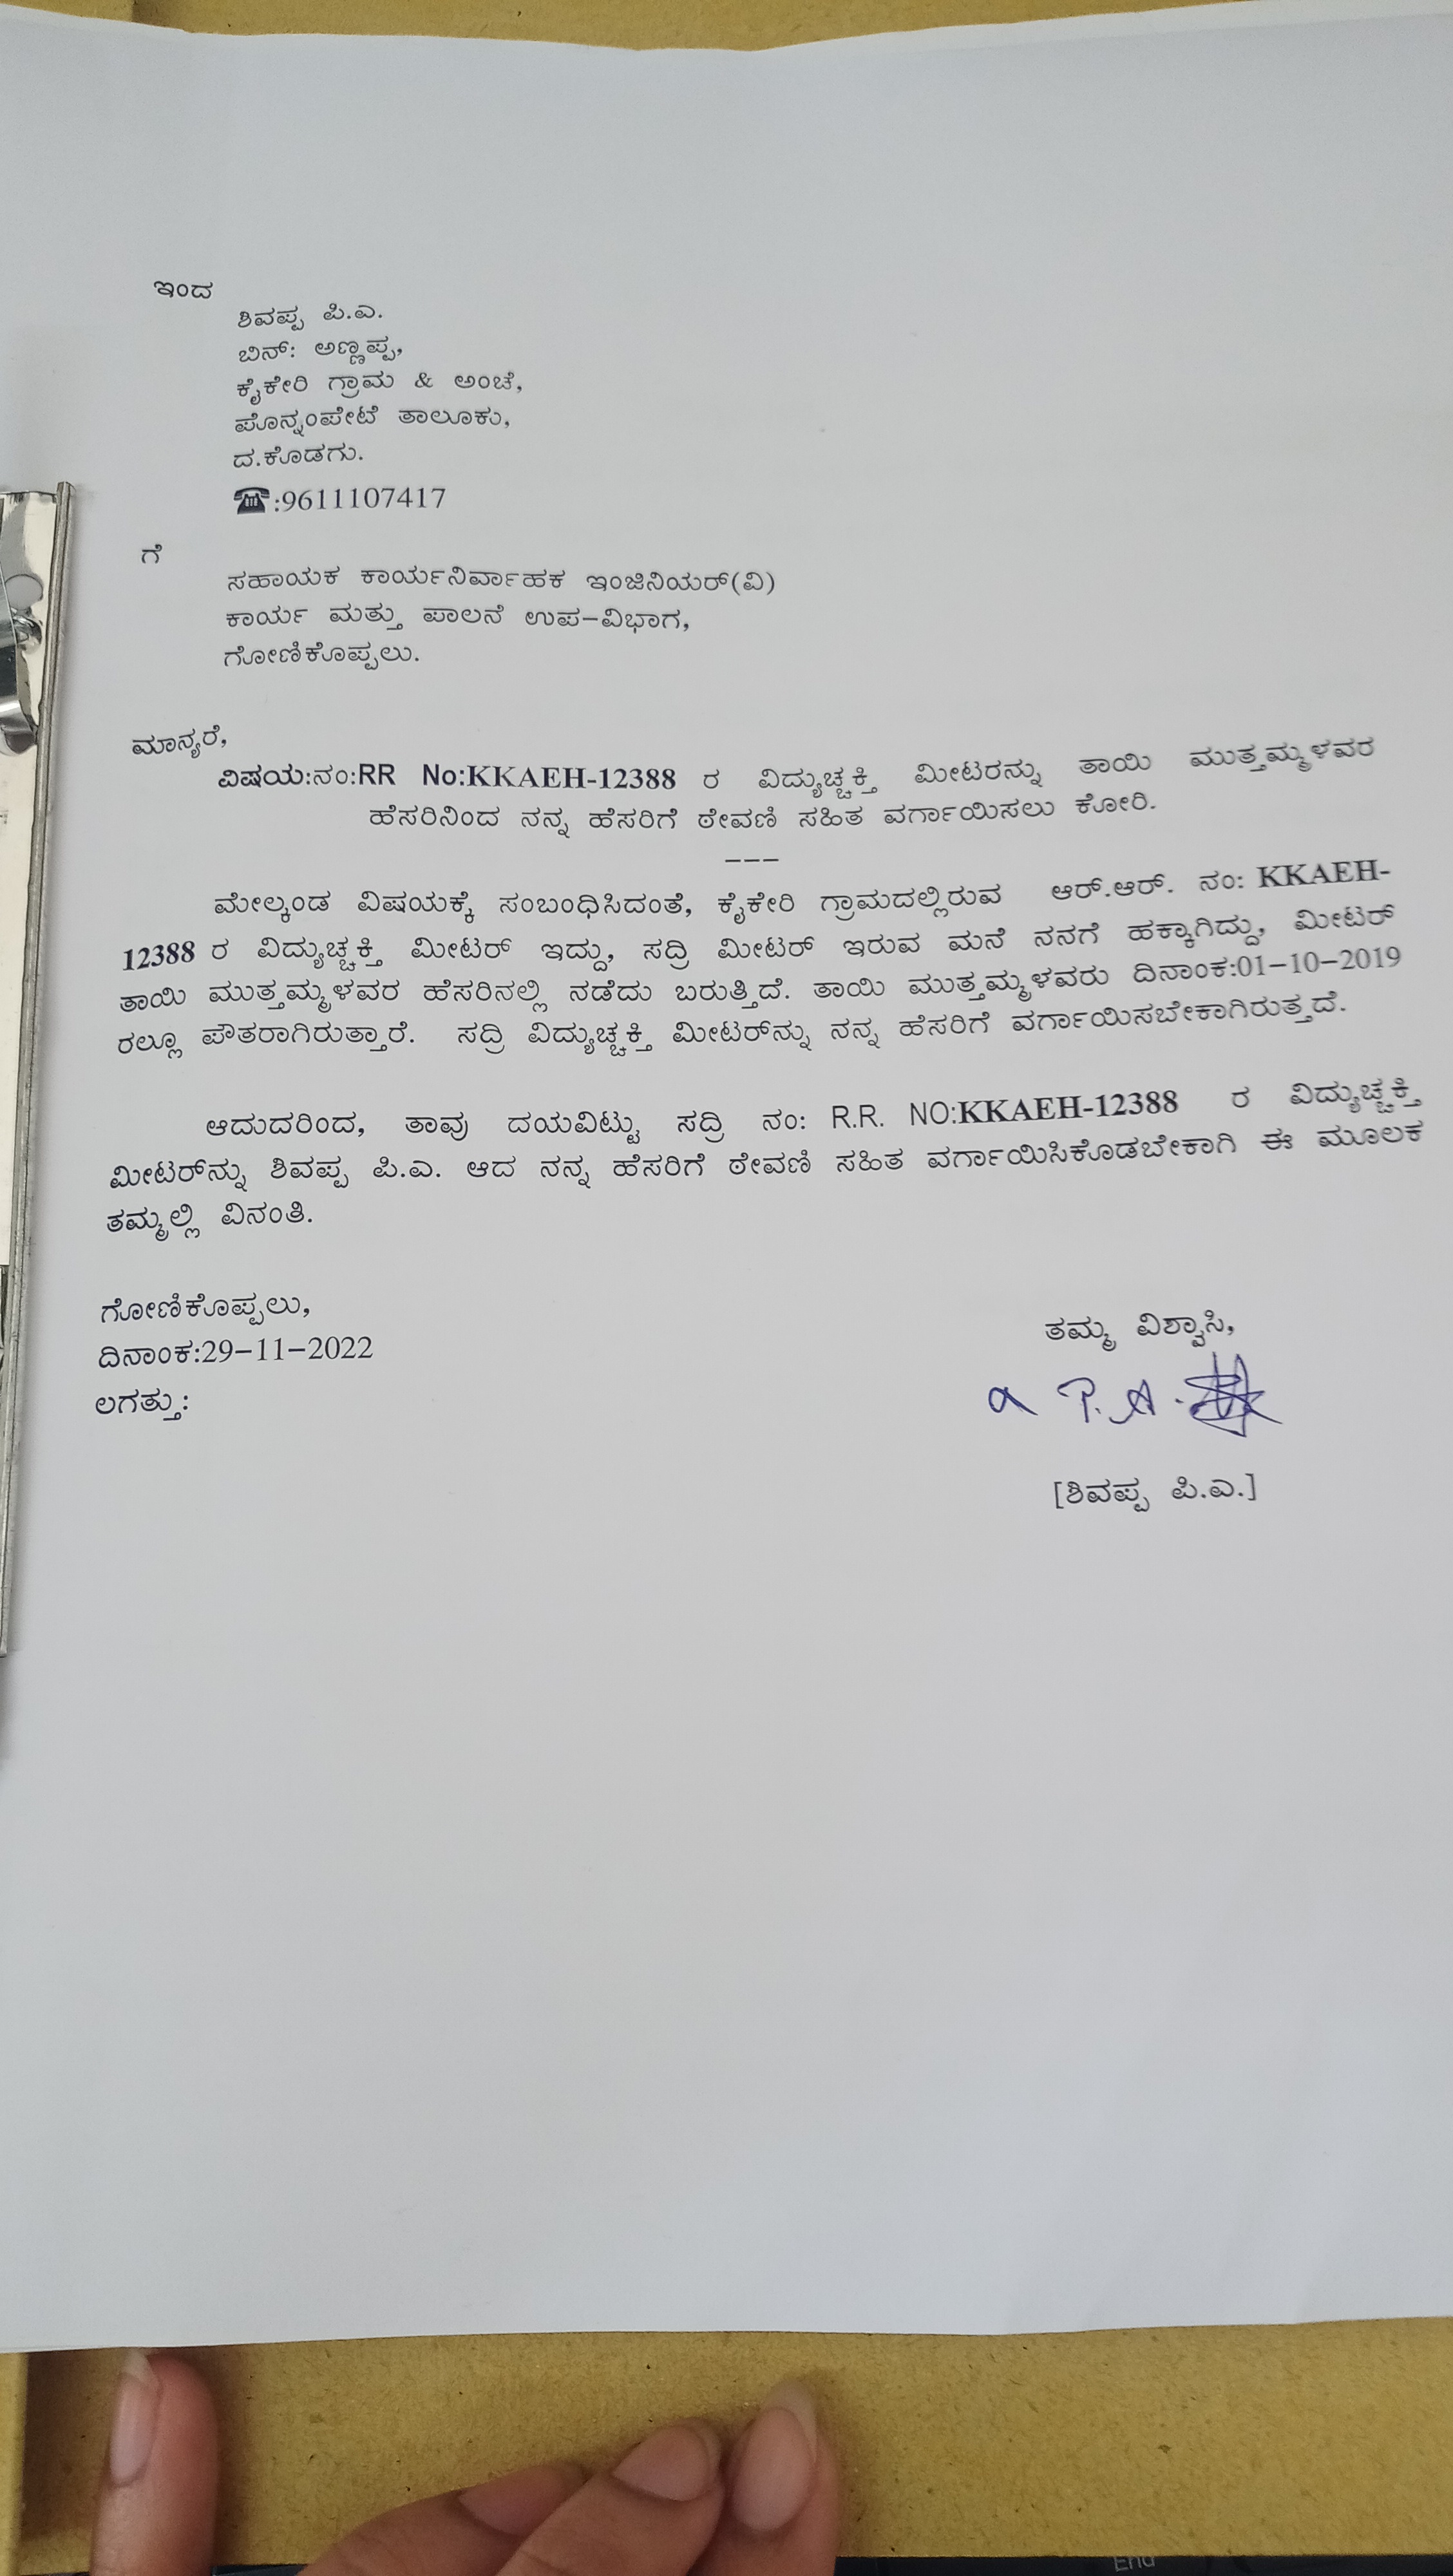 ಇಂದ
ಶಿವಪ್ಪ ಪಿ.ಎ.
ಬಿನ್: ಅಣ್ಣಪ್ಪ,
ಕೈಕೇರಿ ಗ್ರಾಮ & ಅಂಚೆ,
ಪೊನ್ನಂಪೇಟೆ ತಾಲೂಕು,
ದ.ಕೊಡಗು.
☎:9611107417
ಗೆ
ಸಹಾಯಕ ಕಾರ್ಯನಿರ್ವಾಹಕ ಇಂಜಿನಿಯರ್(ವಿ)
ಕಾರ್ಯ ಮತ್ತು ಪಾಲನೆ ಉಪ-ವಿಭಾಗ,
ಗೋಣಿಕೊಪ್ಪಲು.
ಮಾನ್ಯರೆ,
ವಿಷಯ:ನಂ:RR No:KKAEH-12388 ರ ವಿದ್ಯುಚ್ಚಕ್ತಿ ಮೀಟರನ್ನು ತಾಯಿ ಮುತ್ತಮ್ಮಳವರ
ಹೆಸರಿನಿಂದ ನನ್ನ ಹೆಸರಿಗೆ ಠೇವಣಿ ಸಹಿತ ವರ್ಗಾಯಿಸಲು ಕೋರಿ.
---
ಮೇಲ್ಕಂಡ ವಿಷಯಕ್ಕೆ ಸಂಬಂಧಿಸಿದಂತೆ, ಕೈಕೇರಿ ಗ್ರಾಮದಲ್ಲಿರುವ ಆರ್.ಆರ್. ನಂ: KKAEH-
12388 ರ ವಿದ್ಯುಚ್ಚಕ್ತಿ ಮೀಟರ್ ಇದ್ದು, ಸದ್ರಿ ಮೀಟರ್ ಇರುವ ಮನೆ ನನಗೆ ಹಕ್ಕಾಗಿದ್ದು, ಮೀಟರ್
ತಾಯಿ ಮುತ್ತಮ್ಮಳವರ ಹೆಸರಿನಲ್ಲಿ ನಡೆದು ಬರುತ್ತಿದೆ. ತಾಯಿ ಮುತ್ತಮ್ಮಳವರು ದಿನಾಂಕ:01-10-2019
ರಲ್ಲೂ ಪೌತರಾಗಿರುತ್ತಾರೆ. ಸದ್ರಿ ವಿದ್ಯುಚ್ಚಕ್ತಿ ಮೀಟರ್‌ನ್ನು ನನ್ನ ಹೆಸರಿಗೆ ವರ್ಗಾಯಿಸಬೇಕಾಗಿರುತ್ತದೆ.
ಆದುದರಿಂದ, ತಾವು ದಯವಿಟ್ಟು ಸದ್ರಿ ನಂ: R.R. NO:KKAEH-12388 ರ ವಿದ್ಯುಚ್ಚಕ್ತಿ
ಮೀಟರ್‌ನ್ನು ಶಿವಪ್ಪ ಪಿ.ಎ. ಆದ ನನ್ನ ಹೆಸರಿಗೆ ಠೇವಣಿ ಸಹಿತ ವರ್ಗಾಯಿಸಿಕೊಡಬೇಕಾಗಿ ಈ ಮೂಲಕ
ತಮ್ಮಲ್ಲಿ ವಿನಂತಿ.
ಗೋಣಿಕೊಪ್ಪಲು,
ದಿನಾಂಕ:29-11-2022
ಲಗತ್ತು:
ತಮ್ಮ ವಿಶ್ವಾಸಿ,
P. A.
[ಶಿವಪ್ಪ ಪಿ.ಎ.]
End